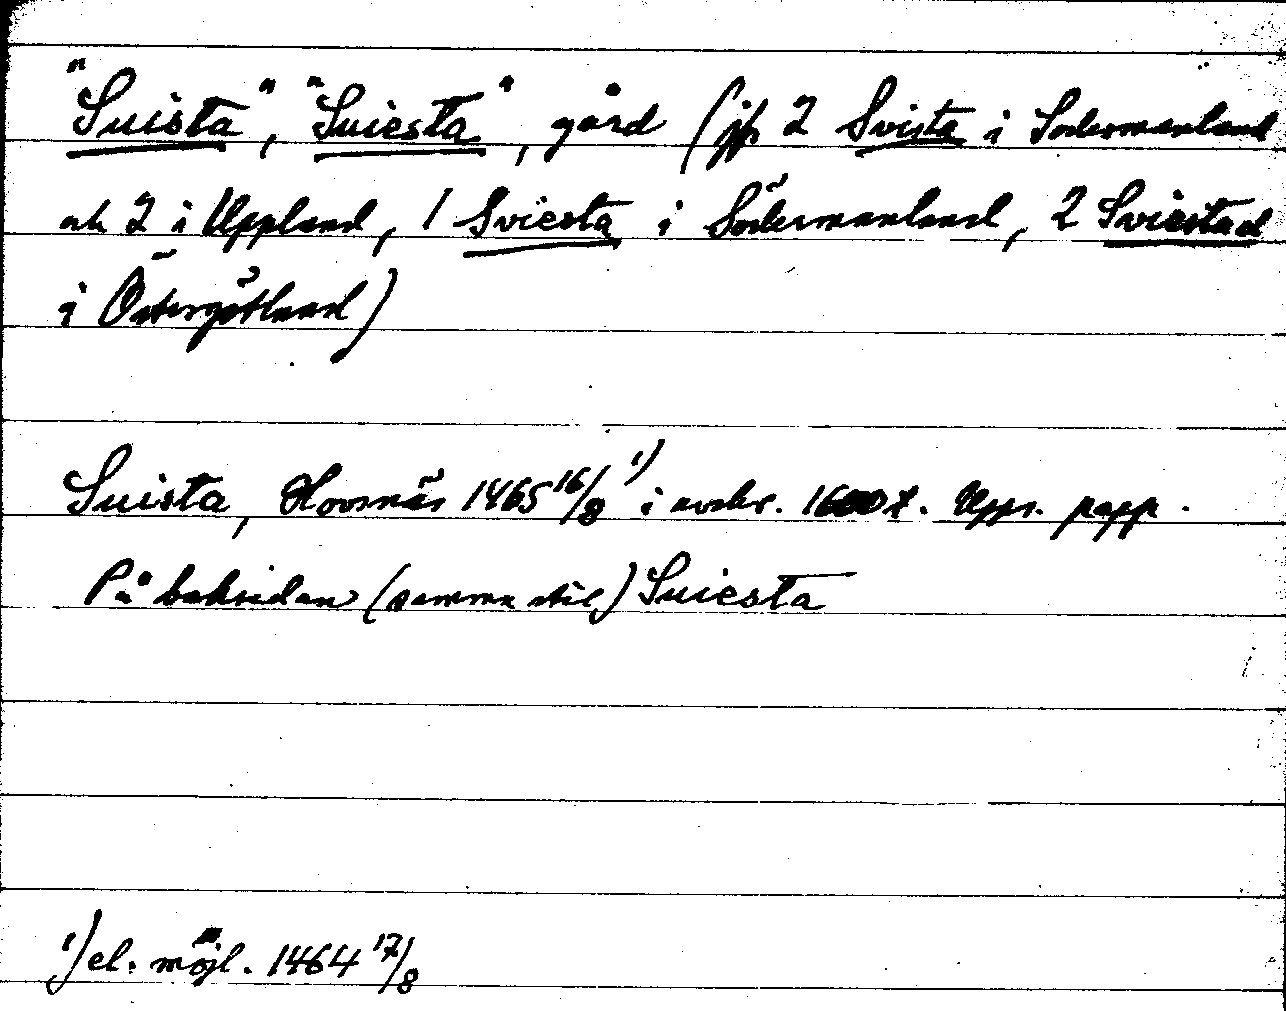 "Suista", "Suiesta", gård (jfr 2 Svista i Södermanland
och 2 i Uppland, 1 Sviesta i Södermanland, 2 Sviestad
i Östergötland)
Suista, Hovsnäs 1465 16/8 1) i avskr. 1600 t. Upps. papp.
På baksidan (samma stil) Suiesta
1) el. möjl. 1464 17/8